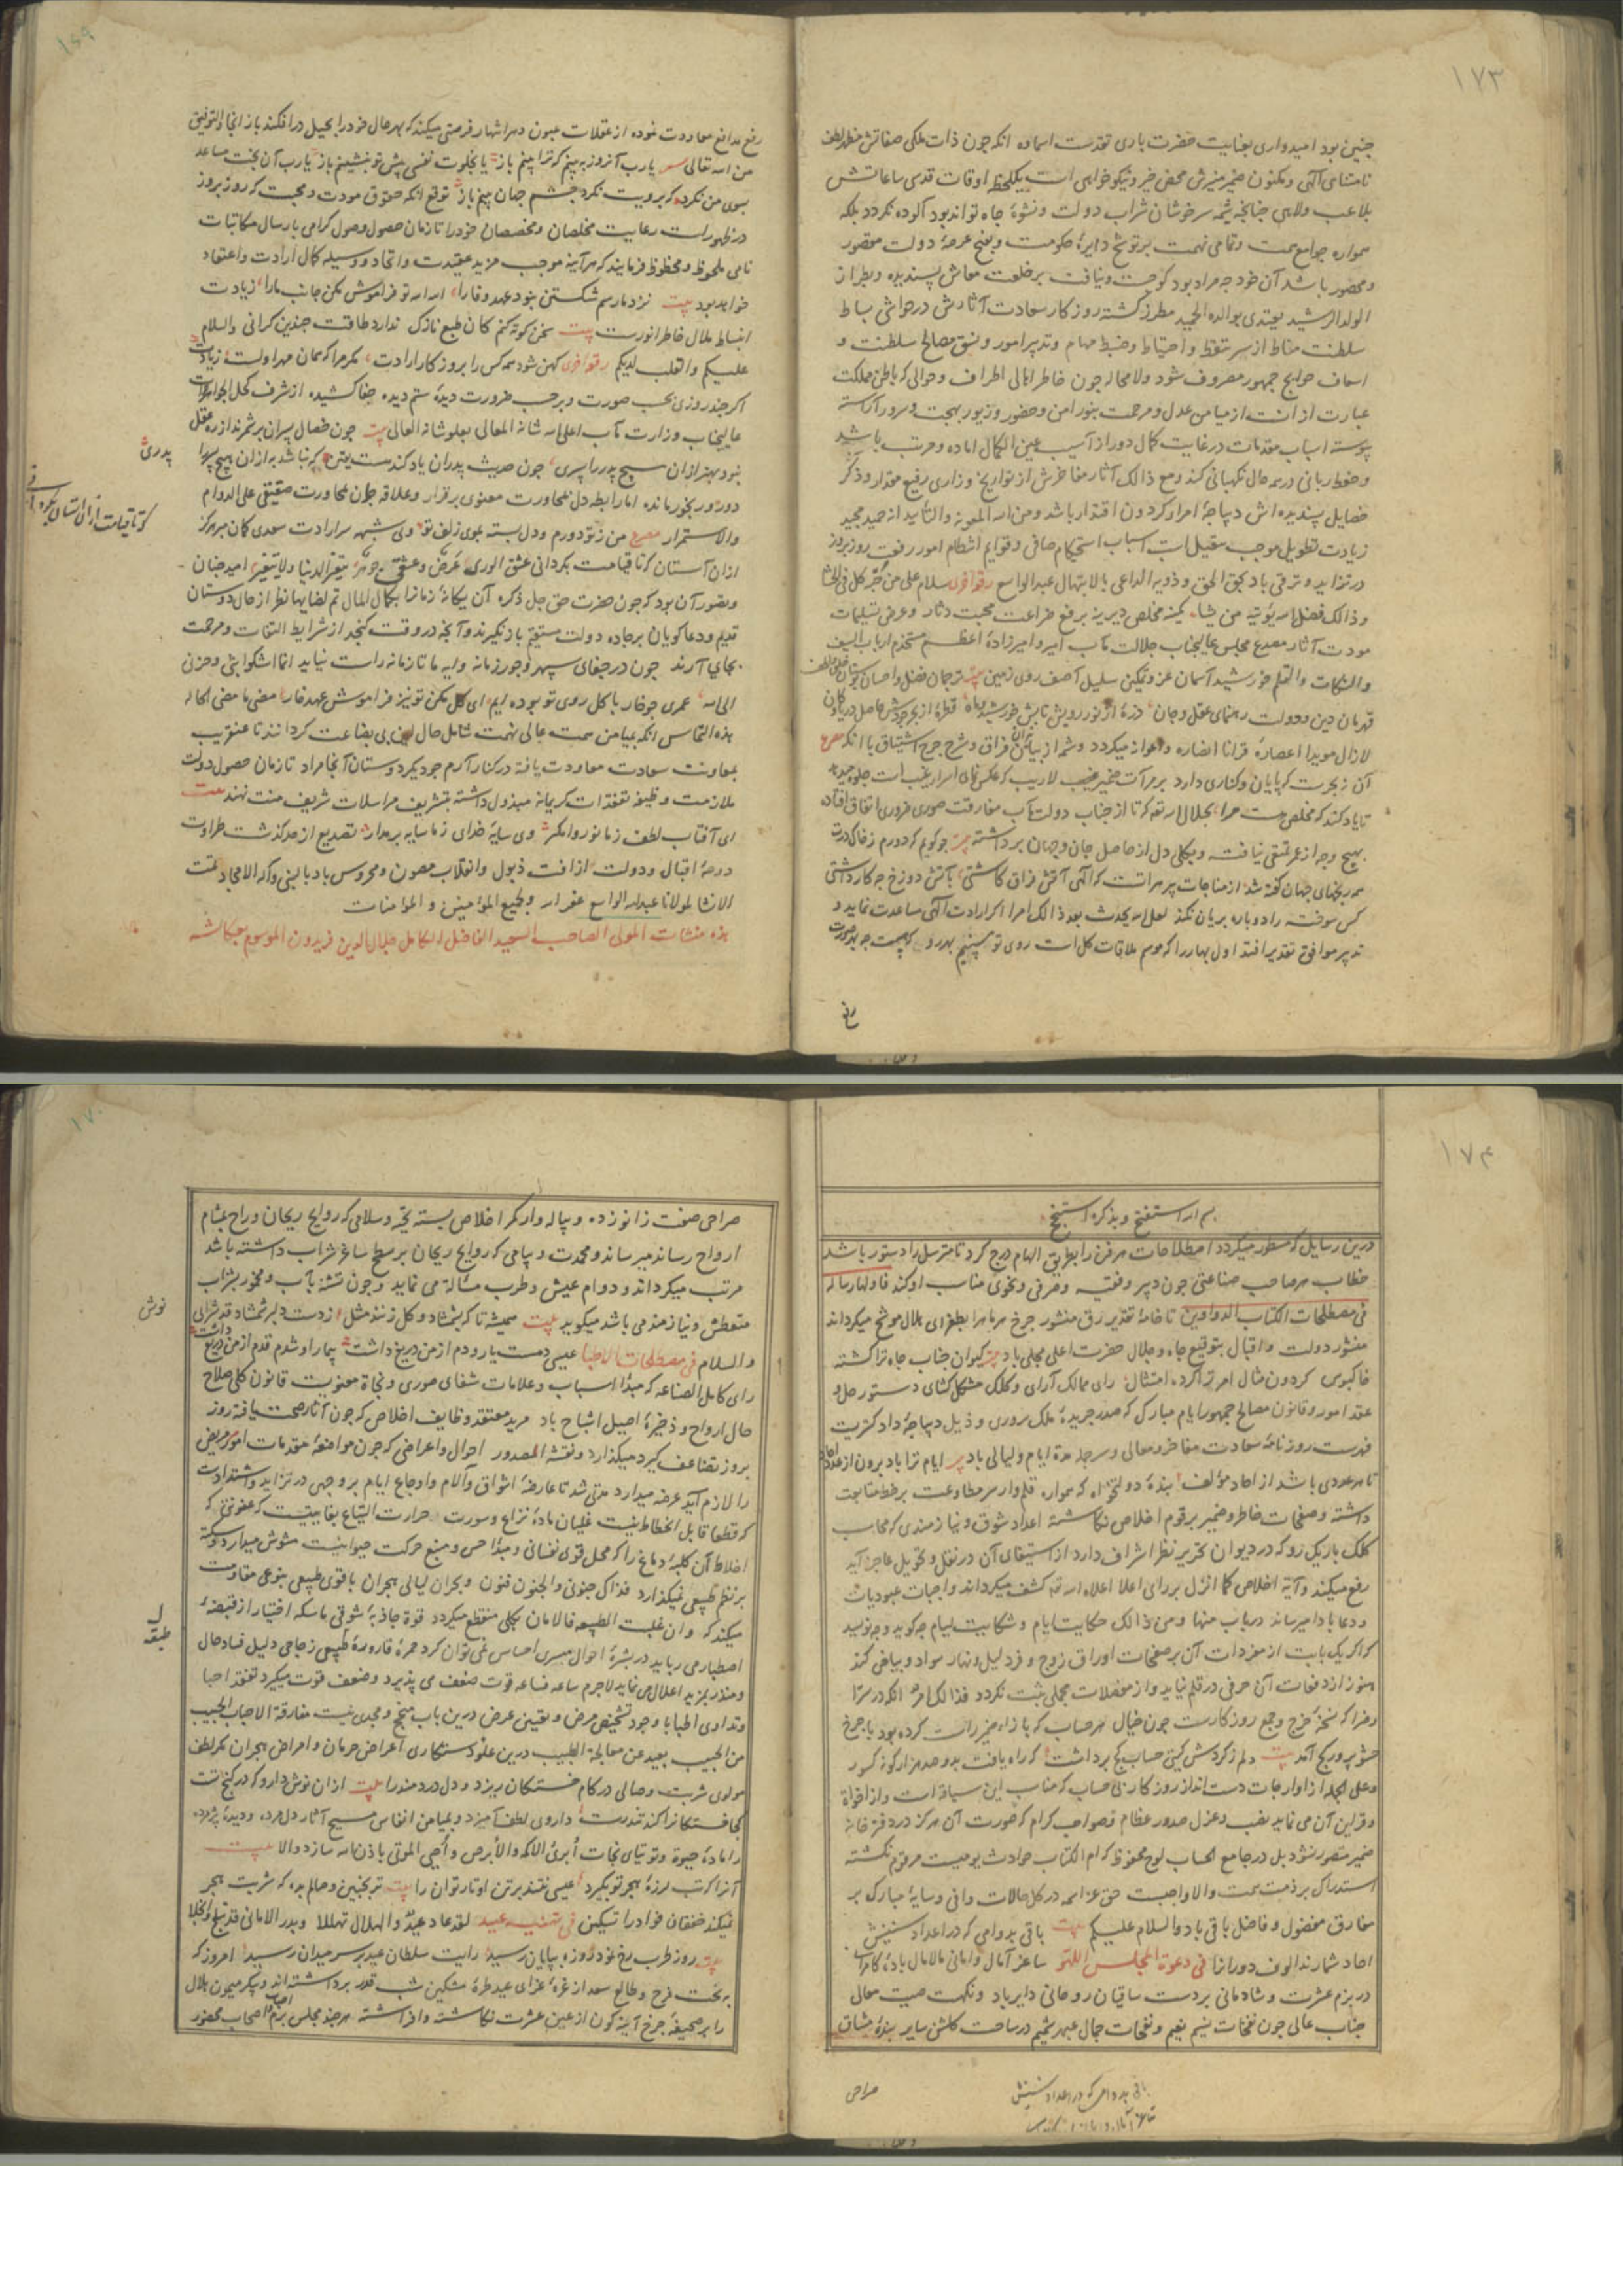 ۱۷۳
چنین بود امیدواری بعنایت حضرت باری تقدست اسماوه انکه چون ذات ملکی صفاتش مظهر لطف
نامتناهی الهی و مکنون ضمیر منیرش محض خیر و نیکو خواهی است یکلحظه اوقات قدسی ساعاتش
بلاعب و ملاهی چنانچه شیمه سرخوشان شراب دولت و نشوهٔ جاه تواند بود آلوده نکردد بلکه
همواره جوامع همت و تمامی نهمت بر توشیح دایرهٔ حکومت و عرصهٔ دولت مقصور
و محضور باشد آن خود چه مراد بود کو جست و نیافت بر خلعت معاش پسندیده و بطراز
الولد الرشید یقتدی بوالده الحمید مطرز کشته روزکار سعادت آثارش در حواشی بساط
سلطنت مناط از سر تیقظ و احتیاط و ضبط مهام و تدبیر امور و نسق مصالح سلطنت و
اسعاف حوایج جمهور مصروف شود و لامحاله چون خاطر اهالی اطراف و حوالی که باطن مملکت
عبارت از انست از میامن عدل و مرحمت بنور امن و حضور و زیور بهجت و سرور آراسته
پیوسته اسباب مقدمات در غایت کمال دور از آسیب عین الکمال اماده و مرتب باشد
و حفظ ربانی در همه حال نکهبانی کند و مع ذالک آثار مفاخرش از تواریخ وزاری رفیع مقدار و ذکر
خصایل پسندیده اش دیباجهٔ امراء کردون اقتدار باشد و من الله المعونه والتایید انه حمید مجید
زیادت تطویل موجب تثقیل است اسباب استحکام صافی و قوایم انتظام امور رفعت روز بروز
در تزاید و ترقی باد بحق الحق و ذویه الداعی بالابتهال عبد الواسع رقعهٔ اخری سلام علی من کل فی الحشا
و ذالک فضل الله یؤتیه من یشاء کمینه مخلص دیرینه برفع ضراعت محبت دثار و عرض تسلیمات
مودت آثار مصدع مجلس عالیجناب جلالت مآب امیر و امیرزادهٔ اعظم مستخدم ارباب السیف
والقلم خورشید آسمان عز و تمکین سلیل آصف روی زمین ترجمان فضل و احسان
قهرمان دین و دولت رهنمای عقل و جان ذرهٔ از نور رویش تابش خورشید و ماه قطرهٔ از بحر جودش حاصل دریا و کان
لازال مویدا اعصاره قرانا انصاره و اعوانه میکردد و شمهٔ از بیان فراق و شرح جرح اشتیاق با انکه مصرع
آن نه بحریست که پایان و کناری دارد بر مرآت ضمیر منیب لاریب که عکس نمای اسرار غیب است جلوه میدهد
تا یاد کند که مخلص هست مرا بجلال الله تعه که تا از جناب دولت مآب مفارقت صوری ضروری اتفاق افتاده
بهیچ وجه از عمر تمتعی نیافته و بکلی دل از حاصل جان و جهان برداشته چو کویم که دورم زخاک درت
همه رنجهای جهان کفته شد از مناجات پیر هراتست که الهی آتش فراق کاشتی با آتش دوزخ چه کار داشتی
کس سوخته را دوباره بریان نکند لعل الله یحدث بعد ذالک امرا اکر ارادت الهی مساعدت نماید و
تدبیر موافق تقدیر افتد اول بهار را که موسم ملاقات کل است روی تو بینیم
رفع
۱۶۹
رفع مدافع معاودت نموده از عقلات عیون دهر انتهاز فرصتی میکند که بهر حال خود را بحیل در افکند باز انجا والتوفیق
من الله تعالی شعر یارب آنروز ببینم که ترا بینم باز یا بخلوت نفسی پیش تو بنشینم باز یارب آن بخت مساعد
بسوی من نکرد که برویت نکرد چشم جهان بینم باز توقع انکه حقوق مودت و محبت که روز بروز
در ظهور است رعایت مخلصان و مختصان خود را تا زمان حصول وصول کرامی بارسال مکاتبات
نامی ملحوظ و محظوظ فرمایند که هر آینه موجب مزید عقیدت و اتحاد و وسیله کمال ارادت و اعتقاد
خواهد بود بیت نزد ما رسم شکستن نبود عهد وفا را الله الله تو فراموش مکن جانب ما را زیادت
انبساط ملال خاطر انورست بیت سخن کوته کنم کان طبع نازک ندارد طاقت چندین کرانی والسلام
علیکم والقلب لدیکم رقعهٔ اخری کهن شود همه کس را بروزکار ارادت مکر مرا که همان مهر اولست زیادت
اکر چند روزی بحسب صورت و برحسب ضرورت دیدهٔ ستم دیده جفا کشیده از شرف کحل الجواهر
عالیجناب وزارت مآب اعلی الله شانه المعالی بعلو شانه العالی بیت چون خصال پسران برشمرند از ره عقل
نبود بهتر ازان هیچ پدر را پسری چون حدیث پدران یاد کنند هست یقین که نباشد به ازان هیچ پسر را
دور و رنجور مانده اما رابطه دل بمجاورت معنوی برقرار و علاقه جان بمحاورت حقیقی علی الدوام
والاستمرار مصرع من ز تو دورم و دل بسته بموی زلف تو ولی شبهه سر ارادت سعدی کمان مبر هرکز
ازان آستان که تا قیامت بکردانی عشق الوری عرض و عشقی جوهر یتغیر الدنیا ولا یتغیر امید چنان
و تصور آن بود که چون حضرت حق جل ذکره آن یکانهٔ زمانرا بکمال المال تم لضایها نظر از حال دوستان
قدیم و دعاکویان بر جاده دولت مستقیم باز نکیرند و آنچه در وقت کنجد از شرایط التفات و مرحمت
بجای آرند چون در جفای سپهر و جور زمانه و ایه ما تا زمانه راست نیاید انما اشکو ابثی و حزنی
الی الله عمری چو خار با کل روی تو بوده ایم ای کل مکن تو نیز فراموش عهد خار مضی ما مضی الحاله
هذه التماس انکه میامن همت عالی نهمت شامل حال این بی بضاعت کردانند تا عنقریب
بمعاونت سعادت معاودت یافته در کنار آرم چو دیکر دوستان آنجا مراد تا زمان حصول دولت
ملازمت وظیفه تفقدات کریمانه مبذول داشته بتشریف مراسلات شریف منت نهند بیت
ای آفتاب لطف ز ما نور وا مکیر وی سایهٔ خدای ز ما سایه بر مدار تصدیع از حد کذشت طراوت
دوحهٔ اقبال و دولت از افت ذبول و انقلاب مصون و محروس باد بالنبی و آله الامجاد تمت
الانشا لمولانا عبد الله الواسع غفر الله و لجمیع المؤمنین و المؤمنات
هذه منشات المولی الصاحب السعید الفاضل الکامل جلال الدین فریدون الموسوم بعکاشه
پدری
کو تا قیامت ازان آستان بکردانی
۱۷۴
بسم الله استفتح و بذکره استنجح
درین رسایل که مسطور میکردد اصطلاحات هر فن را بطریق الهام درج کرد تا مترسل را دستور باشد
خطاب هر صاحب صناعتی چون دبیر و فقیه و صرفی و نحوی مناسب او کند فاولها رساله
فی مصطلحات الکتاب الدواوین تا خامهٔ تقدیر رق منشور چرخ هر ماه را بطغرای هلال موشح میکرداند
منشور دولت و اقبال بتوقیع جاه و جلال حضرت اعلی محلی باد کیوان جناب جاه ترا کشته
خاکبوس کردون مثال امر ترا کرده امتثال رای ممالک آرای و کلک مشکل کشای دستور حل و
عقد امور و قانون مصالح جمهور ایام مبارک که صدر جریدهٔ ملک پروری و ذیل دیباجهٔ داد کستریست
فهرست روزنامهٔ سعادت مفاخر و معالی و سرجلد مدة ایام و لیالی باد ایام ترا باد برون از عدد احاد
تا هر عددی باشد از احاد مؤلف بندهٔ دولتخواه که همواره قلم وار سر مطاوعت بر خط متابعت
داشته و صفحات خاطر و ضمیر برقوم اخلاص نکاشته اعداد شوق و نیازمندی که محاسب
کلک باریک رو که در دیوان تحریر نظر اشراف دارد از استیفای آن در نقل و تحویل عاجز آید
رفع میکند و آیه اخلاص کما انزل بر رای اعلا اعلاه الله تعه کشف میکرداند واجبات عبودیات
و دعا بادا میرساند در باب منها و من ذالک حکایت ایام و شکایت لیام چه کوید و چه نویسد
که اکر یک بابت از مفردات آن بر صفحات اوراق زوج و فرد لیل و نهار سواد و بیاض کند
هنوز از دفعات آن حرفی در قلم نیاید و از مفصلات مجملی ثبت نکردد فذالک امره انکه در سرّا
و ضرّا که نسخهٔ خرج و جمع روزکارست چون خیال هر حساب که بازاء ضمیر راست کرده بود با چرخ
حشو پرور کج آمد بیت دلم ز کردش کیتی حساب کج برداشت که راه یافت بدو صد هزار کونه کسور
و علی الجمله از اوارجات دست انداز روزکار بی حساب که مناسب این سیاقه است و از افواه
و قراین آن می نماید نصب و عزل صدور عظام و صواحب کرام که صورت آن هرکز در دفتر خانه
ضمیر متصور نشود بل در جامع الحساب لوح محفوظ که ام الکتاب حوادث یومیست مرقوم نکشته
استدراک بر ذمت همت والا واجبست حق عز اسمه در کل حالات وافی و سایهٔ مبارک بر
مفارق مفضول و فاضل باقی باد والسلام علیکم بیت باقی بدوامی که در اعداد سنینش
احاد شمارند الوف دوران را فی دعوة المجلس اللهو ساغر آمال و امانی مالامال بادهٔ کامرانی
در بزم عشرت و شادمانی بر دست ساقیان روحانی دایر باد و نکهت صیت معالی
جناب عالی چون نفحات نسیم نعیم و نفحات جمال عبهر شمیم در ساحت کلشن سایر بندهٔ مشتاق
باقی بدوامی که در اعداد سنینش
صراحی
۱۷۰
صراحی صفت زانو زده و پیاله وار کمر اخلاص بسته تحیّه و سلامی که روایح ریحان و راح بمشام
ارواح رساند میرساند و محمدت و پیامی که روایح ریحان بر سطح ساغر شراب داشته باشد
مرتب میکرداند و دوام عیش و طرب مسأله می نماید و چون تشنه بآب و مخمور بشراب
متعطش و نیازمند می باشد میکوید بیت همیشه تا که بشمشاد و کل زنند مثل از دست دلبر شمشاد قد شراب
والسلام فی مصطلحات الاطبا عیسی دمست یار و دم از من دریغ داشت بیمار او شدم قدم از من دریغ داشت
رای کامل الصناعه که مبدا اسباب و علامات شفای صوری و نجاة معنویست قانون کلی صلاح
حال ارواح و ذخیرهٔ اصیل اشباح باد مرید معتقد وظایف اخلاص که چون آثار صحت یافته روز
بروز تضاعف کیرد میکذارد و نفثة المصدور احوال و اعراضی که چون مواضعهٔ مقدمات امور مریض
را لازم آید عرضه میدارد مدتی شد تا عارضهٔ اشواق و آلام و اوجاع ایام بر وجهی در تزاید و اشتداد است
که قطعا قابل انحطاط نیست غلیان مادهٔ نزاع و سورت حرارت التیاع بغایتیست که عفونتی که
اخلاط آن کلبهٔ دماغ را که محل قوی نفسانی و مبدا حس و منبع حرکت حیوانیست مشوش میدارد و سکته
بر نظم طبیعی نمیکذارد فذاک جنونی والجنون فنون و بحران لیالی هجران با قوی طبیعی بنوعی مقاومت
میکند که و ان غلبت الطبیعه فالامان بکلی منقطع میکردد قوة جاذبهٔ شوقی ماسکه اختیار از قبضهٔ
اصطبار می رباید در بشرهٔ احوال میسری احساس نمی توان کرد حمرهٔ قارورهٔ طبیعی زجاجی دلیل فساد حال
و منذر بمزید اعلال می نماید لاجرم ساعه فساعه قوت ضعف می پذیرد و ضعف قوت میکیرد تفقد احبا
و تداوی اطبا با وجود تشخیص مرض و تعیین عرض درین باب منجح و مجدی نیست مفارقة الاحباب الحبیب
من الحبیب بعید عن معالجة الطبیب درین علو دستکاری اعراض حرمان و امراض هجران مکر لطف
مولوی شربت وصالی در کام خستکان ریزد و دل دردمند را بیت ازان نوش دارو که در کنج تست
کجا خستکانرا کند تندرست داروی لطف آمیزد و بمیامن انفاس مسیح آثار دل مرده و دیدهٔ پژمرده
را مادهٔ حیوة و توتیای نجات أبرئ الاکمه والأبرص و أحیی الموتی باذن الله سازد والا بیت
آنرا که تب لرزهٔ هجر تو بکیرد عیسی نتند بر تن او تار توان را بیت ترنجبین وصالم بده که شربت هجر
نمیکند خفقان فواد را تسکین فی تهنیه عید لقد عاد عید والهلال تهللا و بدر الامانی قد تبلج
بیت روز طرب رخ نمود روزه بپایان رسید رایت سلطان عید بر سر میدان رسید امروز که
به تخت فرح و طالع سعد از غرهٔ غرای عید طرهٔ مشکین شب قدر برداشته اند و پیکر میمون هلال
را بر صحیفهٔ چرخ آینه کون از عین عشرت نکاشته و افراشته هر چند مجلس بزم اصحاب حضور
نوش
طبقه